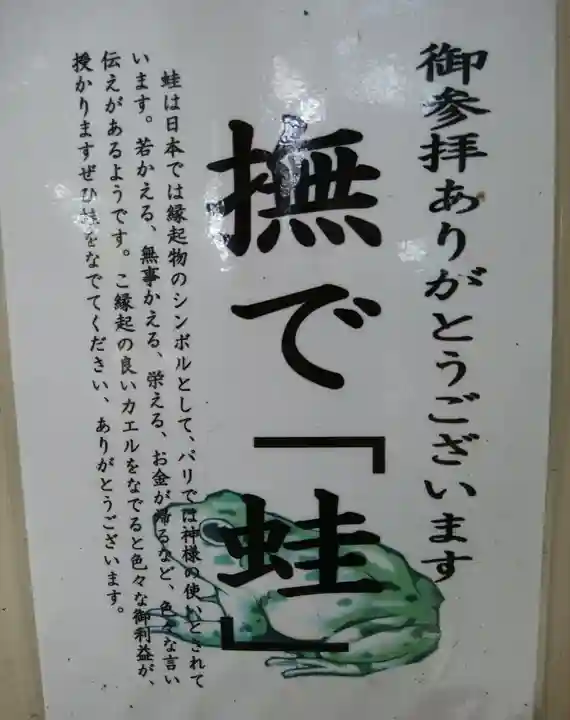 御参拝ありがとうございます
撫で「蛙」
蛙は日本では縁起物のシンボルとして、バリでは神様の使いとされて
います。若かえる、無事かえる、栄える、お金が帰るなど、色々な言い
伝えがあるようです。ご縁起の良いカエルをなでると色々な御利益が、
授かりますぜひ蛙をなでてください、ありがとうございます。